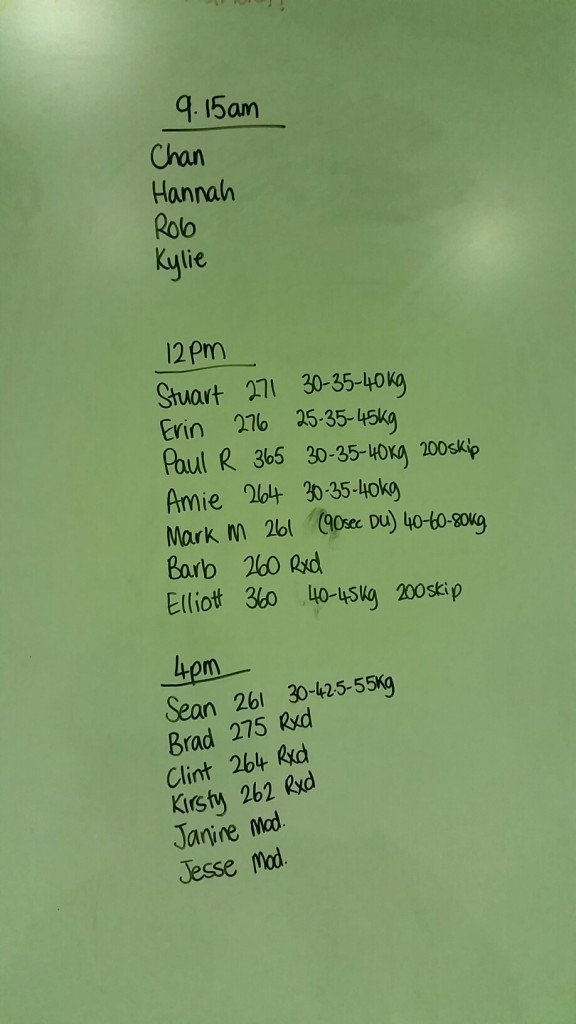 9.15am
Chan
Hannah
Rob
Kylie
12pm
Stuart 271 30-35-40kg
Erin 276 25-35-45kg
Paul R 365 30-35-40kg 200skip
Amie 264 30-35-40kg
Mark M 261 (90sec DU) 40-60-80kg
Barb 260 Rxd
Elliott 360 40-45kg 200skip
4pm
Sean 261 30-42.5-55kg
Brad 275 Rxd
Clint 264 Rxd
Kirsty 262 Rxd
Janine Mod.
Jesse Mod.